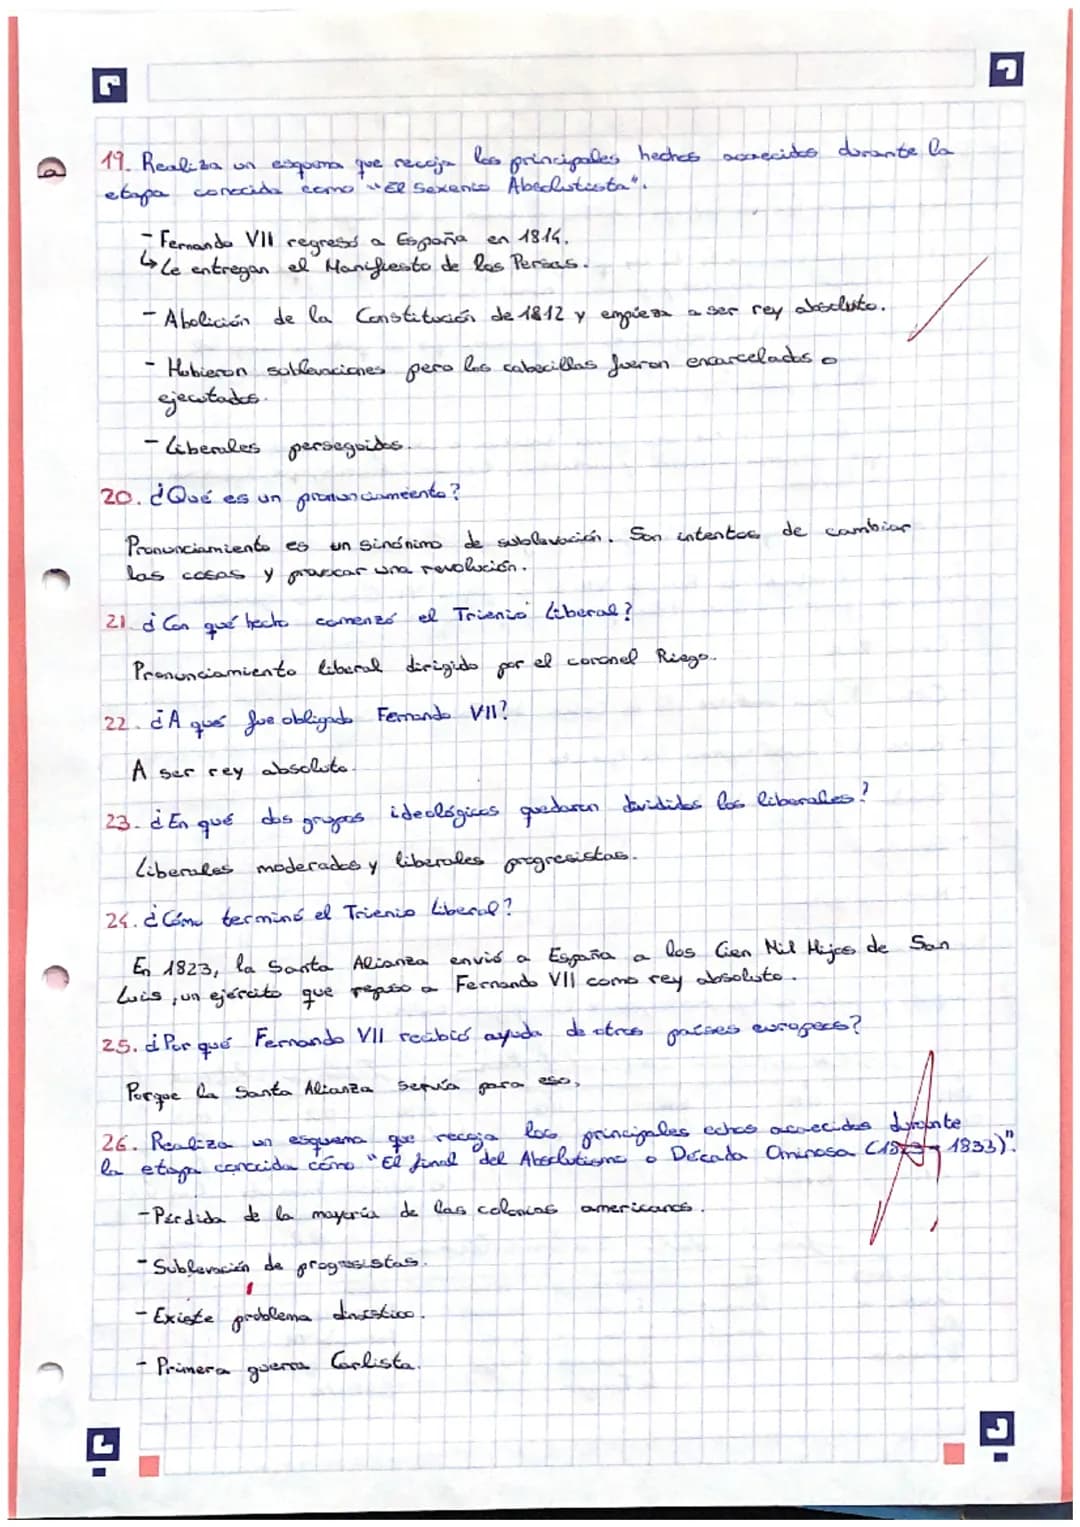 19. Realiza un esquema que recoja los principales hechos acaecidos durante la
etapa conocida como "El Sexenio Absolutista".
- Fernando VII regresó a España en 1814.
↳ Le entregan el Manifiesto de los Persas.
- Abolición de la Constitución de 1812 y empieza a ser rey absoluto.
- Hubieron sublevaciones pero los cabecillas fueron encarcelados o
ejecutados.
- Liberales perseguidos.
20. ¿Qué es un pronunciamiento?
Pronunciamiento es un sinónimo de sublevación. Son intentos de cambiar
las cosas y provocar una revolución.
21. ¿Con qué hecho comenzó el Trienio Liberal?
Pronunciamiento liberal dirigido por el coronel Riego.
22. ¿A qué fue obligado Fernando VII?
A ser rey absoluto.
23. ¿En qué dos grupos ideológicos quedaron divididos los liberales?
Liberales moderados y liberales progresistas.
24. ¿Cómo terminó el Trienio Liberal?
En 1823, la Santa Alianza envió a España a los Cien Mil Hijos de San
Luis, un ejército que repuso a Fernando VII como rey absoluto.
25. ¿Por qué Fernando VII recibió ayuda de otros países europeos?
Porque la Santa Alianza servía para eso.
26. Realiza un esquema que recoja los principales echos acaecidos durante
la etapa conocida cómo "El final del Absolutismo o Década Ominosa (1823-1833)".
- Pérdida de la mayoría de las colonias americanas.
- Sublevación de progresistas.
- Existe problema dinástico.
- Primera guerra Carlista.